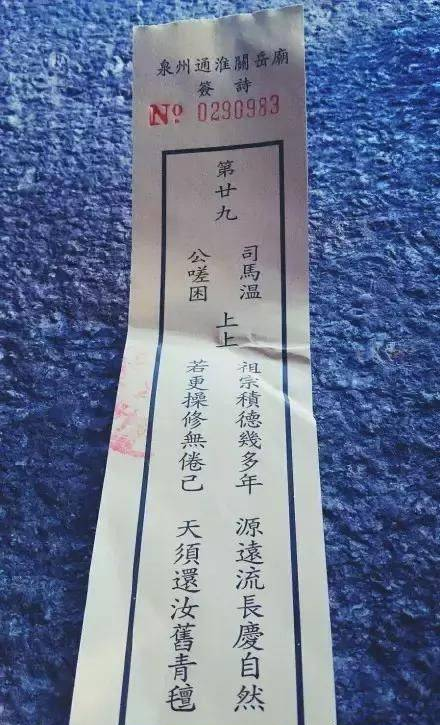 泉州通淮關岳廟
簽詩
Nº 0290983
第廿九
司馬溫
公嗟困
上上
祖宗積德幾多年 源遠流長慶自然
若更操修無倦己 天須還汝舊青氊